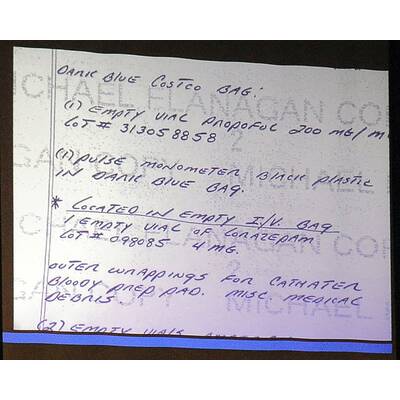 DARK BLUE COSTCO BAG:
(1) EMPTY VIAL PROPOFOL 200 MG/M
LOT # 313058858
(1) PULSE MONOMETER BLACK PLASTIC
IN DARK BLUE BAG.
* LOCATED IN EMPTY I/V BAG
1 EMPTY VIAL OF LORAZEPAM
LOT # 098085 4 MG.
OUTER WRAPPINGS FOR CATHATER
BLOODY PREP PAD. MISC MEDICAL
DEBRIS.
(2) EMPTY VIALS
ICHAEL FLANAGAN COP
2
GAN COPY MICHAEL
FLANAGAN COP
2
GAN COPY MICHAEL